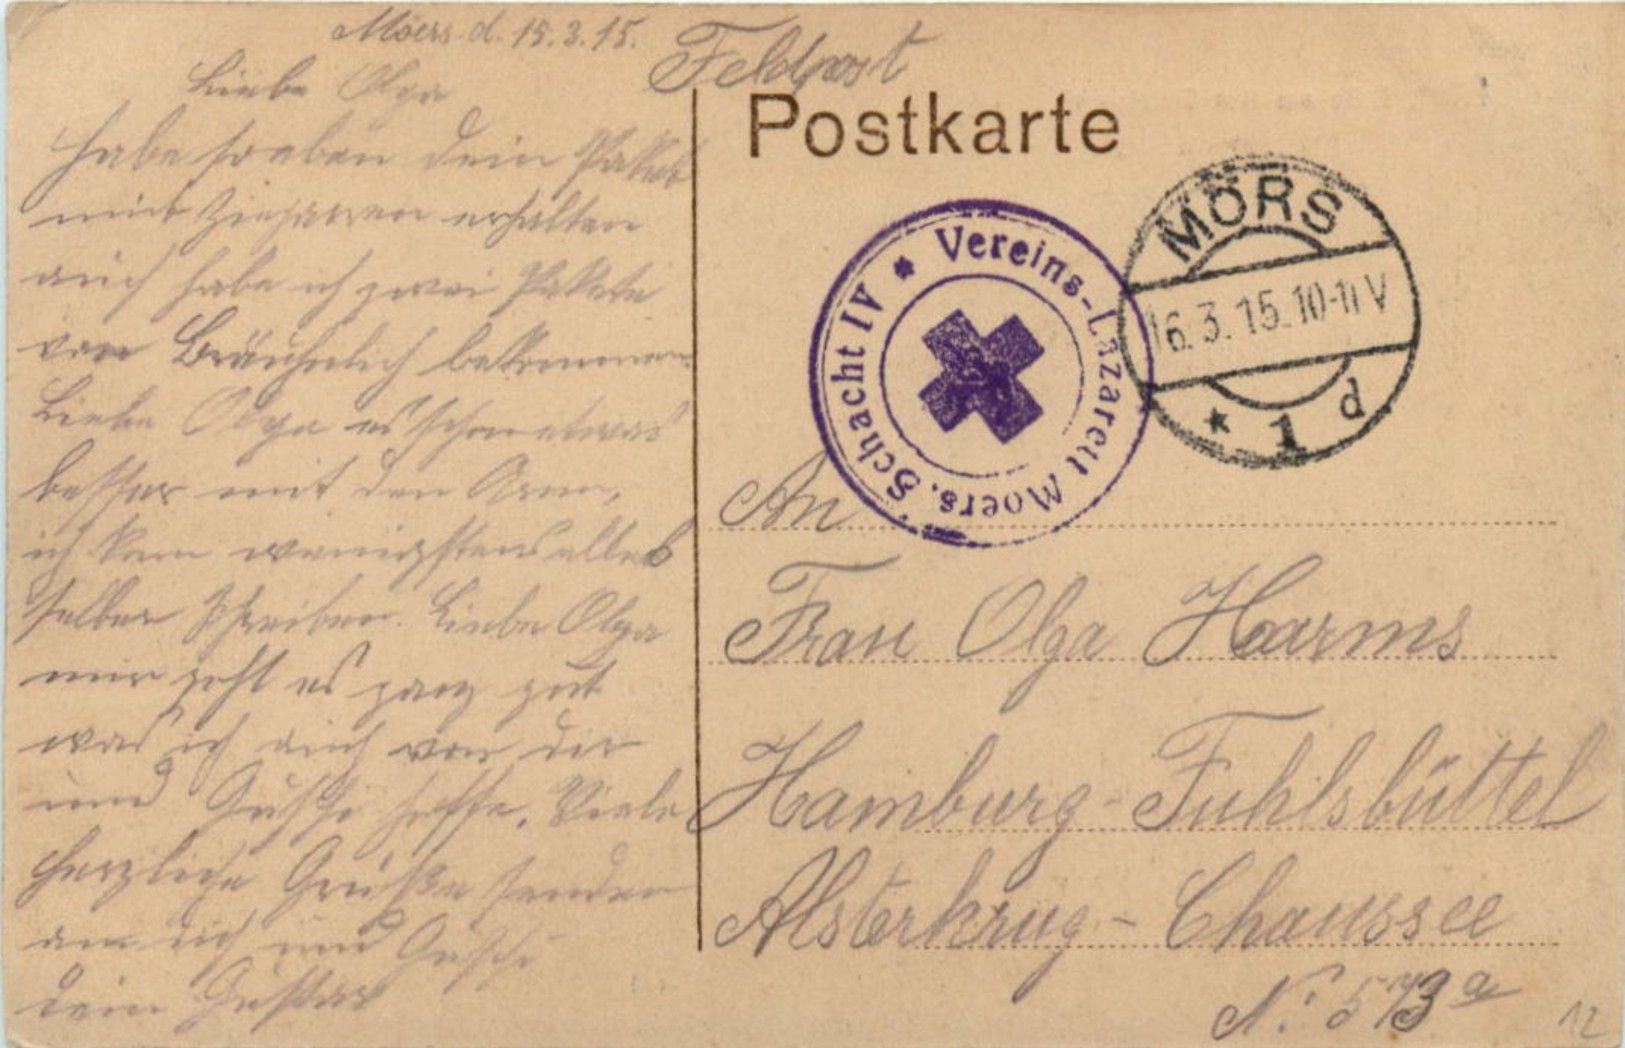 Moers d. 15.3.15.
Liebe Olga
habe soeben dein Paket
mit Ziegarren erhalten
auch habe ich zwei Pakete
von bekommen.
Liebe Olga es schon etwas
besser mit den Arm,
ich kann wenigstens alles
selber schreiben. Liebe Olga
mir geht es ganz gut
was ich auch von dir
und hoffe. Viele
herzliche Grüße senden
an dich und
dein Gustav
Feldpost
Postkarte
Vereins-Lazarett Moers. Schacht IV *
MÖRS
16.3.15.10-11V
* 1 d
An
Frau Olga Harms
Hamburg-Fuhlsbüttel
Alsterkrug-Chaussee
N: 573a
12